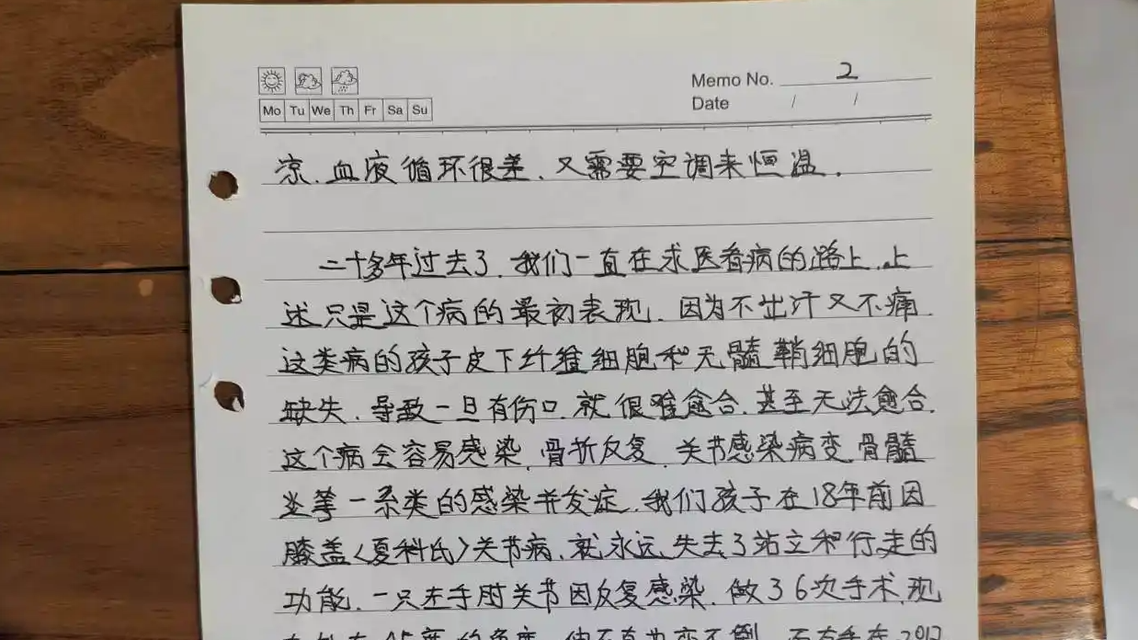 Memo No. 2
Mo Tu We Th Fr Sa Su
Date / /
凉、血液循环很差、又需要空调来恒温.
二十多年过去了、我们一直在求医看病的路上、上
述只是这个病的最初表现、因为不出汗又不痛
这类病的孩子皮下纤维细胞和无髓鞘细胞的
缺失、导致一旦有伤口、就很难愈合、甚至无法愈合、
这个病会容易感染、骨折反复、关节感染病变、骨髓
炎等一系类的感染并发症、我们孩子在18年前因
膝盖〈夏科氏〉关节病、就永远失去了站立和行走的
功能、一只左手肘关节因反复感染、做36次手术、现
在 45度的角度、 2017